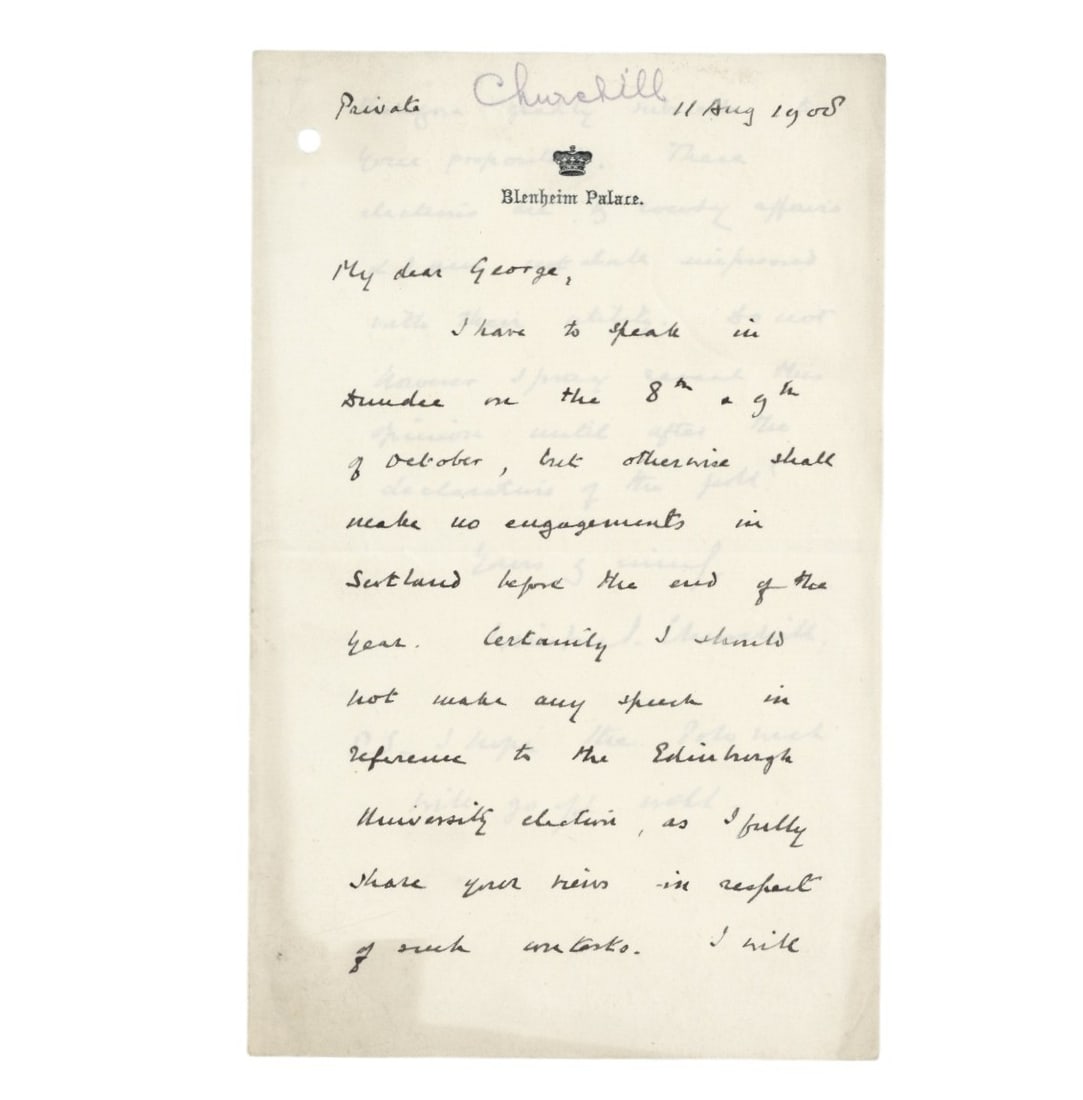 Churchill
Private 11 Aug 1908
Blenheim Palace.
My dear George,
I have to speak in
Dundee on the 8th & 9th
of October, but otherwise shall
make no engagements in
Scotland before the end of the
year. Certainly I should
not make any speech in
reference to the Edinburgh
University election, as I fully
share your views in respect
of such contests. I will